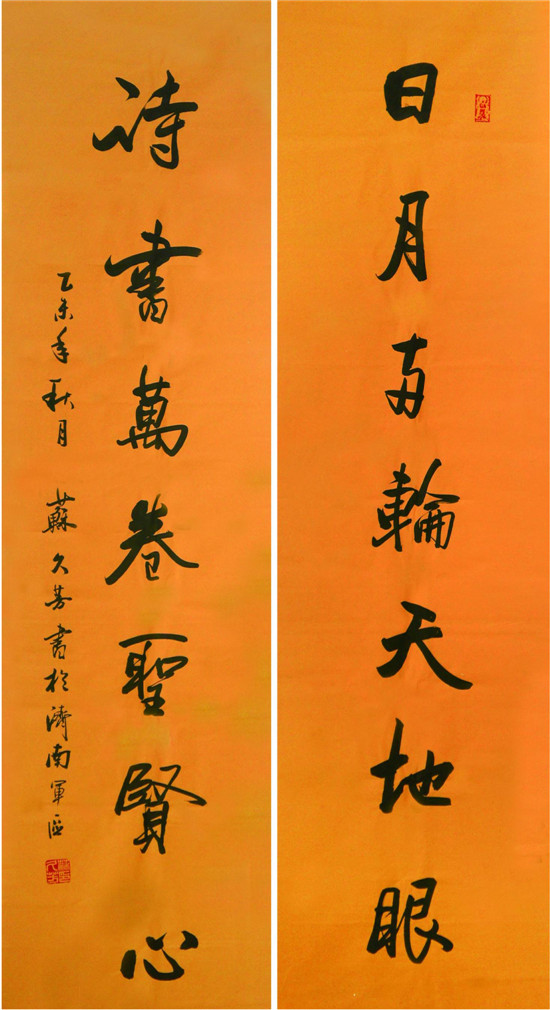 日月两輪天地眼
詩書萬卷聖賢心
乙未年秋月 蘇久芳書於濟南軍區